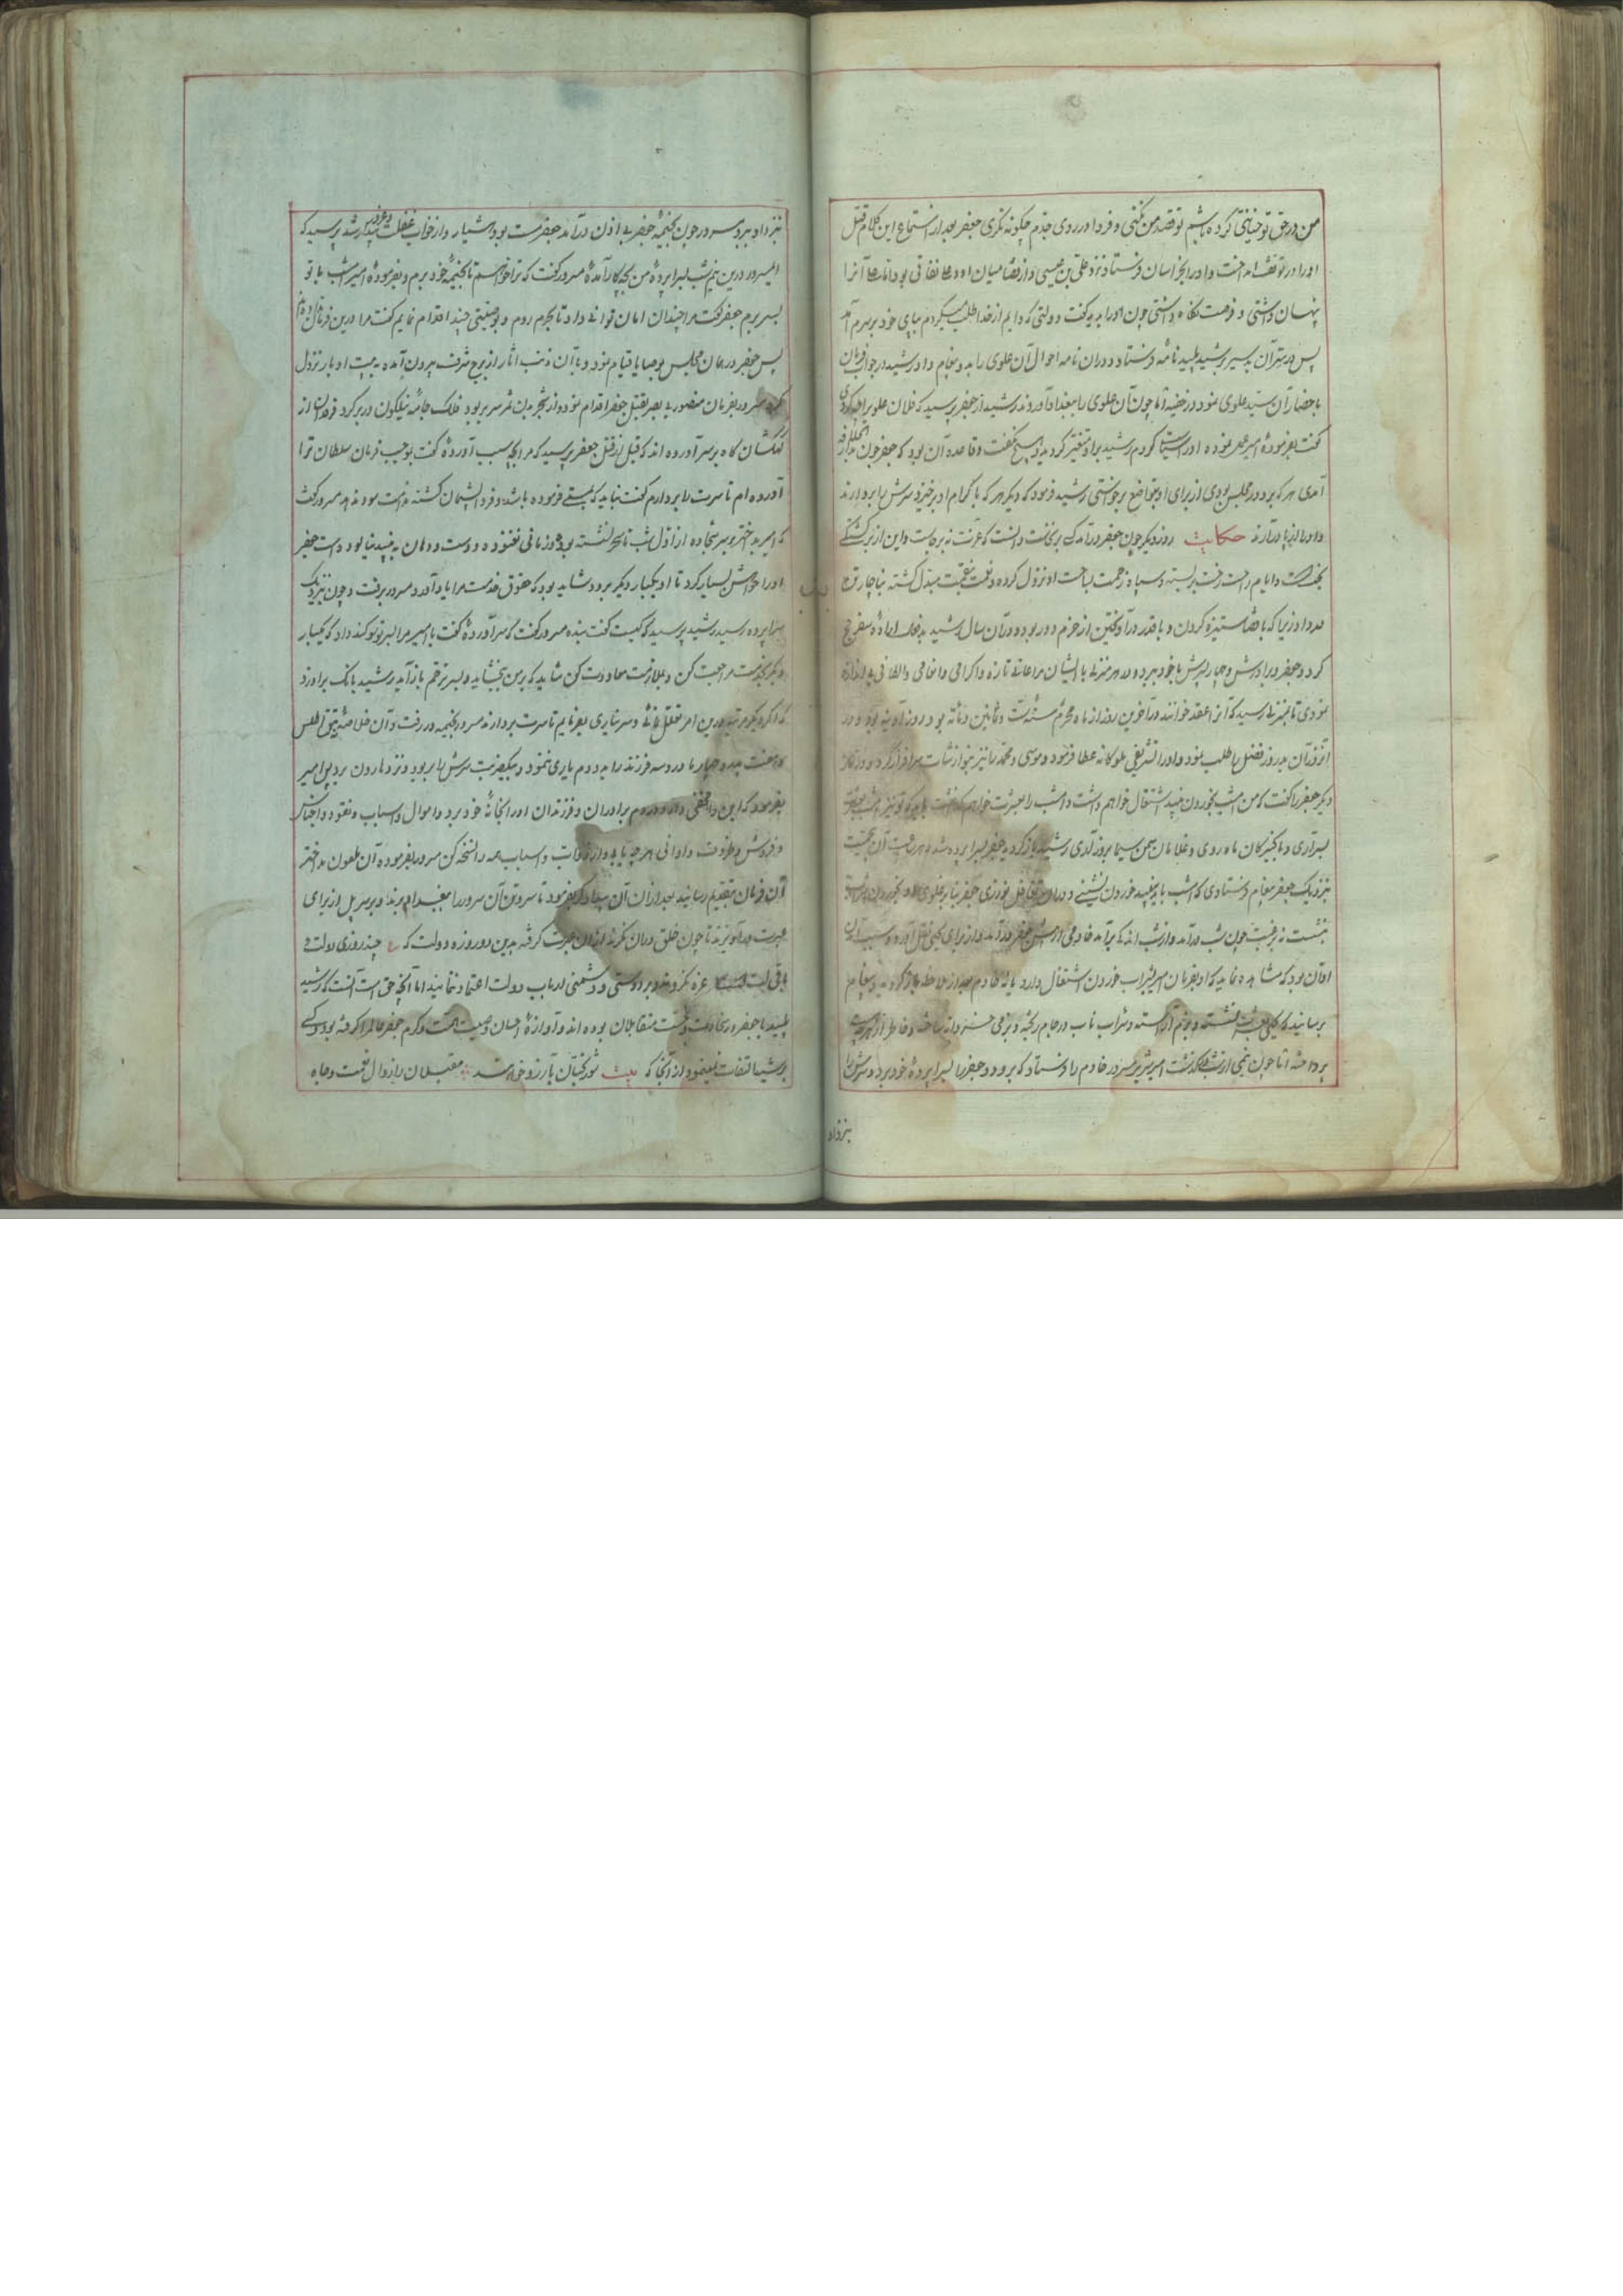 من در حق تو خیانتی کرده باشم تو قصد من نکنی و فردا در روی جدم چکونه نکری جعفر بعد از استماع این کلام قتل
او را در توقف انداخت و او را بخراسان فرستاد نزد علی بن عیسی و از قضا میان او و علی نفاقی بود اما علی آنرا
پنهان داشتی و فرصت نکاه داشتی چون او را بدید کفت دولتی که دایم از خدا طلب میکردم بپای خود بر سرم آمد
پس در ستر آن بر سر رشید پلید نامه فرستاد و در آن نامه احوال آن علوی را بدو پیغام داد رشید در جواب فرمان
باحضار آن سید علوی نمود در خفیه اما چون آن علوی را ببغداد آوردند رشید از جعفر پرسید که فلان علوی را چه کردی
کفت بفرموده امیر عمل نموده او را سیاست کردم رشید برو متغیر کردید و هیچ نکفت و قاعده آن بود که جعفر چون
آمدی هر که بر در مجلس بودی از برای او بتواضع برخواستی رشید فرمود که دیکر هر که باکرام او برخیزد سرش را بردارند
و او را از پا درآرند حکایت روز دیکر چون جعفر درآمد کسی برنخاست دانست که عزت نه برجاست و این از برکشتکی
بختست و ایام راحت رخت بربسته و سپاه زحمت بساحت او نزول کرده و نعمت بنقمت مبدل کشته بناچار تن
درداد زیرا که با قضا ستیزه کردن و با قدر درآویختن از حزم دور بود و در آن سال رشید پلید اراده سفر حج
کرد و جعفر و برادرش و چهار پسرش با خود ببرد و در هر منزلی با ایشان مراعات تازه و اکرامی و انعامی و الطافی بی اندازه
نمودی تا بمنزلی رسید که آنرا عقد خوانند در آخرین روز از ماه محرم سنه ست و ثمانین و مائه بود روز آدینه بود و در
آنروز آن مدروز فضل را طلب نمود و او را تشریفی ملوکانه عطا فرمود و موسی و محمد را نیز بنوازشات سرافراز کرد و روز
دیکر جعفر را کفت که من امشب بخوردن نبید اشتغال خواهم داشت و امشب را بعیشرت خواهم کذشت باید که تو نیز امشب بعشرت
بسرآری و با کنیزکان ماه روی و غلامان سمن سیما بروز آری رشید باز کردید جعفر بسراپرده شد و هر ساعت آن بدبخت
نزدیک جعفر پیغام فرستادی که امشب باید بنبید خوردن نشینی و در آن تغافل نورزی جعفر بنا بر غلوی او بخوردن شراب
بنشست نه برغبت چون شب درآمد و از شب اندکی برآمد خادمی از پیش جعفر درآمد و از برای کمی نقل آورد و سبب آمدن
او آن بود که مشاهده نماید که او بفرمان امیر بشراب خوردن اشتغال دارد یا نه خادم بعد از ملاحظه باز کردید و پیغام
برسانید که کلی بعشرت نشسته و بزم آراسته و شراب ناب در جام ریخته و بزمی خسروانه ساخته و خاطر از هر جهت
پرداخته اما چون نیمی از شب درکذشت امیر شریر مسرور خادم را فرستاد که برو و جعفر را بسراپرده خود برد و سرش را
بنزد او
بنزد او ببر و مسرور چون بخیمه جعفر بی اذن درآمد جعفر مست بود هشیار و از خواب غفلت و غرور بیدار شد پرسید که
ای مسرور درین نیم شب بسراپرده من بچه کار آمده مسرور کفت که ترا خواستم تا بخیمه خود برم و بفرموده امیر امشب با تو
بسر برم جعفر کفت مرا چندان امان توانی داد تا بحرم روم و بوصیتی چند اقدام نمایم کفت مرا درین فرمان نداده
پس جعفر در همان مجلس بوصایا قیام نمود و با آن ذنب آثار از برج شرف بیرون آمده به بیت او بار نزول
کرد مسرور بفرمان منصور بی بصر بقتل جعفر اقدام نمود و از شجر بدن ثمر سر بربود فلک جامه نیلکون در بر کرد و فرقدان از
کهکشان کاه بر سر آورده اند که قبل از قتل جعفر پرسید که مرا بچه سبب آورده کفت بموجب فرمان سلطان ترا
آورده ام تا سرت را بردارم کفت نباید که بمستی فرموده باشد و فردا پشیمان کشته ندامت سود ندهد مسرور کفت
که امیر بد اختر بر سر سجاده از اول شب تا بحال نشسته بود و زمانی نغنوده و دست و دهان به نبید نیالوده است جعفر
او را خواهش بسیار کرد تا او یکبار دیکر برود شاید بود که حقوق خدمت مرا بیاد آورد مسرور برفت و چون نزدیک
سراپرده رسید رشید پرسید که کیست کفت بنده مسرور کفت که سر آورده کفت یا امیر مرا بسر تو سوکند داد که یکبار
دیکر بخدمت مراجعت کن و بملازمت معاودت کن شاید که بر من ببخشاید و بسر ترحم بازآید رشید بانک برآورد
که اکر دیکر مرتبه درین امر تعلل نمائی و سر نیاری بفرمایم تا سرت بردارند مسرور بخیمه در رفت و آن خلاصه
بفرمود که این را مخفی دار و در دم برادران و فرزندان او را بخانه خود برد و اموال و اسباب و نقود و اجناس
و فروش و ظروف و اوانی هر چه یابی و از دواب و اسباب همه را نسخه کن مسرور بفرموده آن ملعون بد اختر
آن فرمان بتقدیم رسانید بعد از آن آن بیدادکر بفرمود تا سر و تن آن سرور را ببغداد برند و بر سر پل از برای
عبرت درآویزند تا چون خلق در آن نکرند از آن عبرت کرفته بدین دو روزه دولت که ع چند روزی دولت
باقی است غره نکردند و بر دوستی و دشمنی ارباب دولت اعتماد ننمایند اما آنچه حق است آنست که رشید
پلید با جعفر در سخاوت و خست متقابلان بوده اند و آوازه احسان و صیت همت و کرم جعفر عالم را کرفته بود و کسی
برشید التفات نمینمود از آنجا که بیت شوربختان بآرزو خواهند مقبلان را زوال نعمت و جاه